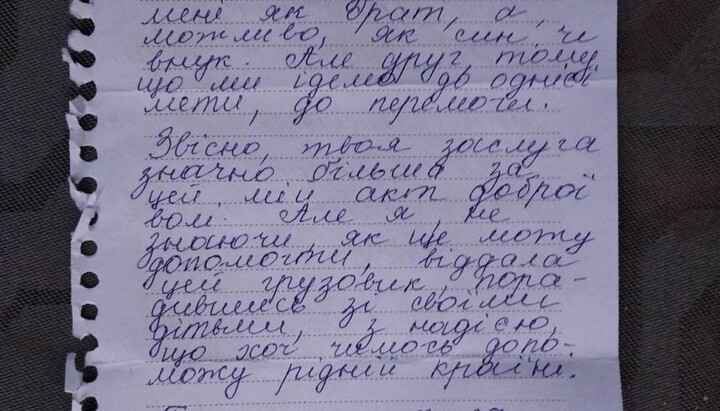 мені як брат, а,
можливо, як син чи
внук. Але друг, тому
що ми ідемо до однієї
мети, до перемоги.
Звісно, твоя заслуга
значно більша за
цей мій акт доброї
волі. Але я, не
знаючи, як ще можу
допомогти, віддала
цей грузовик, пора-
дившись зі своїми
дітьми, з надією,
що хоч чимось допо-
можу рідній країні.